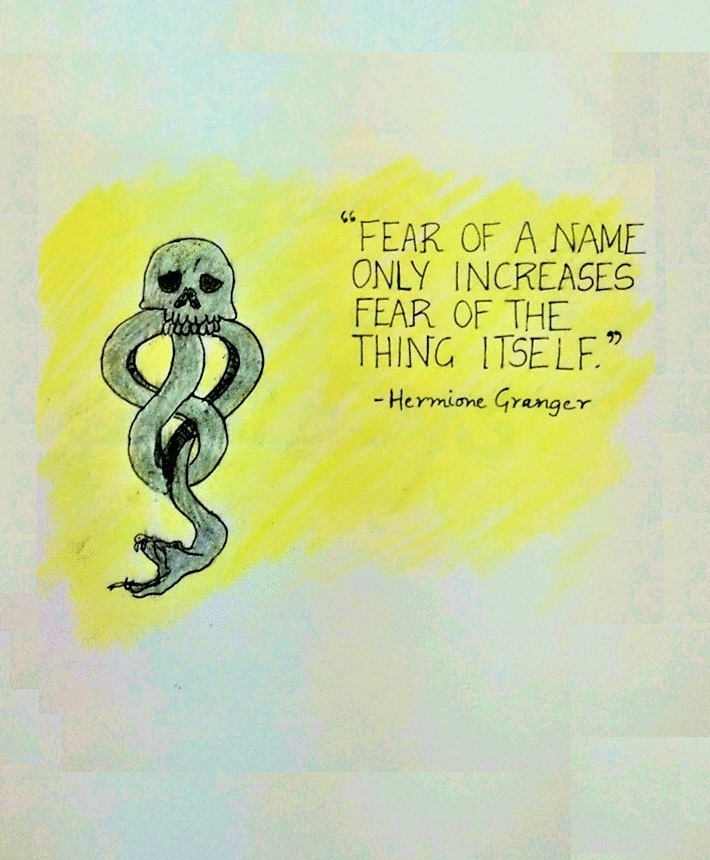 “FEAR OF A NAME
ONLY INCREASES
FEAR OF THE
THING ITSELF.”
-Hermione Granger